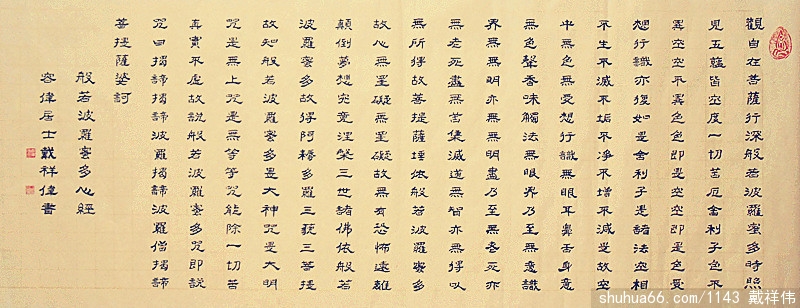 觀自在菩薩行深般若波羅蜜多時照
見五蘊皆空度一切苦厄舍利子色不
異空空不異色色即是空空即是色受
想行識亦復如是舍利子是諸法空相
不生不滅不垢不淨不增不減是故空
中無色無受想行識無眼耳鼻舌身意
無色聲香味觸法無眼界乃至無意識
界無無明亦無無明盡乃至無老死亦
無老死盡無苦集滅道無智亦無得以
無所得故菩提薩埵依般若波羅蜜多
故心無罣礙無罣礙故無有恐怖遠離
顛倒夢想究竟涅槃三世諸佛依般若
波羅蜜多故得阿耨多羅三藐三菩提
故知般若波羅蜜多是大神咒是大明
咒是無上咒是無等等咒能除一切苦
真實不虛故說般若波羅蜜多咒即說
咒曰揭諦揭諦波羅揭諦波羅僧揭諦
菩提薩婆訶
般若波羅蜜多心經
容偉居士戴祥偉書
shuhua66.com/1143 戴祥伟